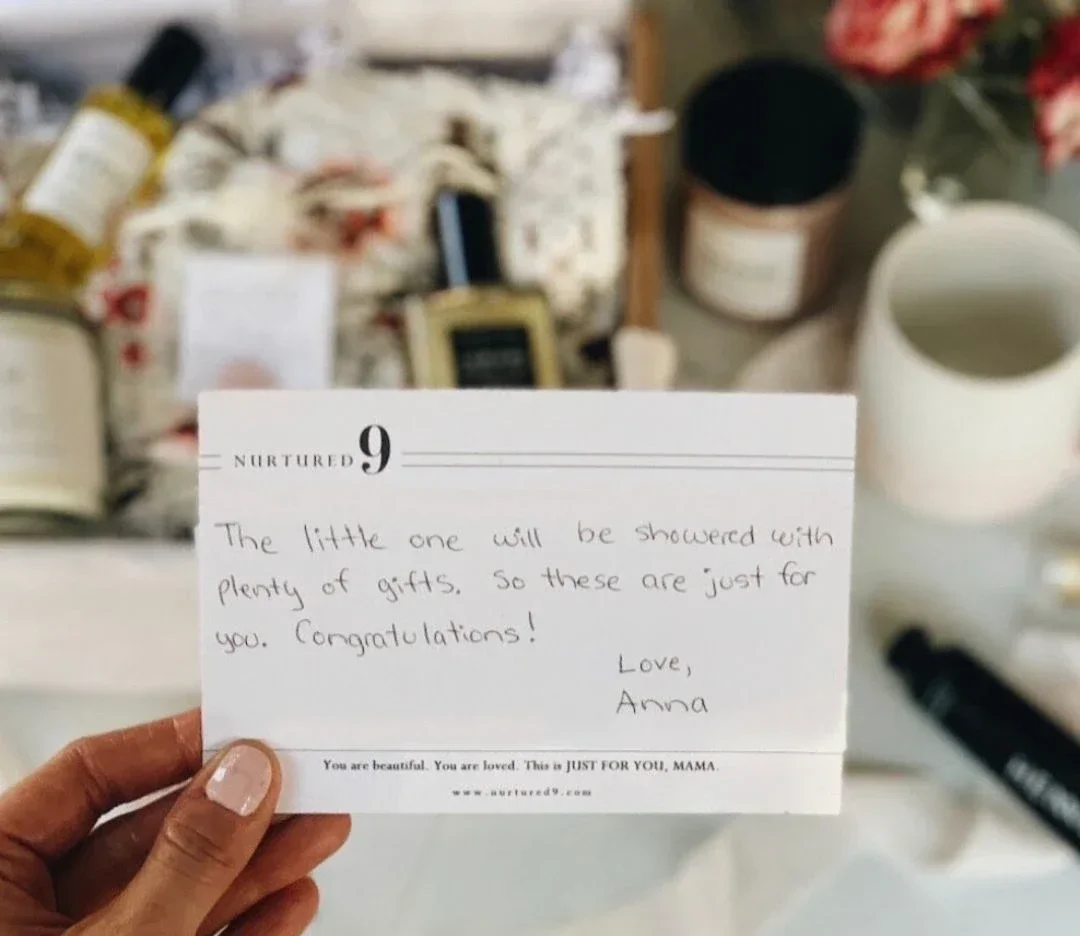 NURTURED 9
The little one will be showered with
plenty of gifts. So these are just for
you. Congratulations!
Love,
Anna
You are beautiful. You are loved. This is JUST FOR YOU, MAMA.
www.nurtured9.com